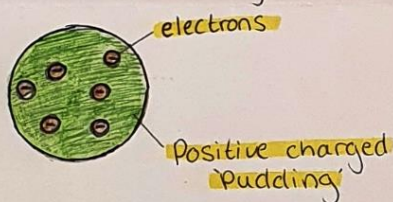 electrons
Positive charged
'Pudding'